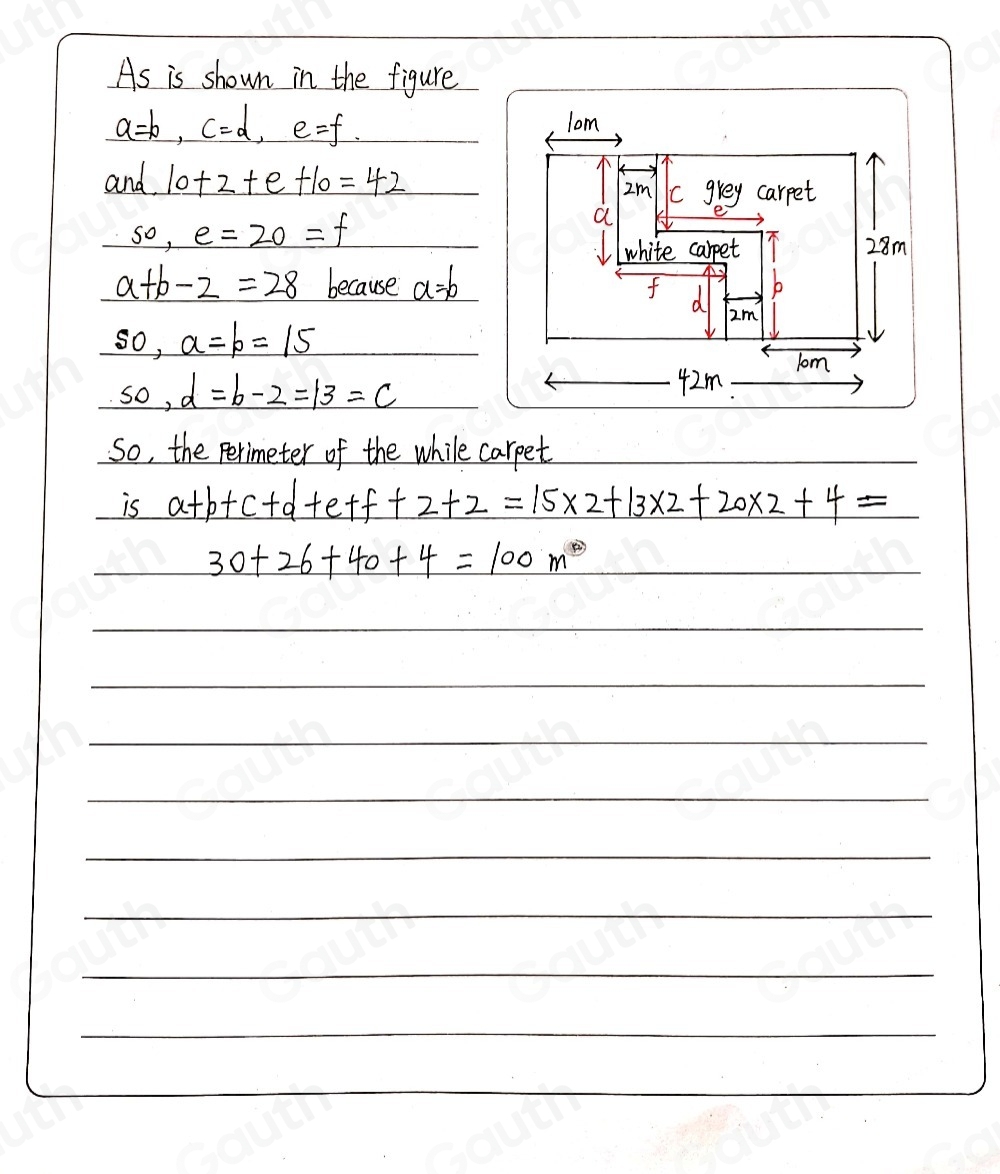 As is shown in the figure
a=b, c=d, e=f.
and 10+2+e+10=42
so, e=20=f
a+b-2=28 because a=b
so, a=b=15
so, d=b-2=13=c
So, the Perimeter of the while carpet
is a+b+c+d+e+f+2+2=15×2+13×2+20×2+4=
30+26+40+4=100 m
10m
2m
c grey carpet
a
e
white carpet
28m
f
d
b
2m
10m
42m
Gauth